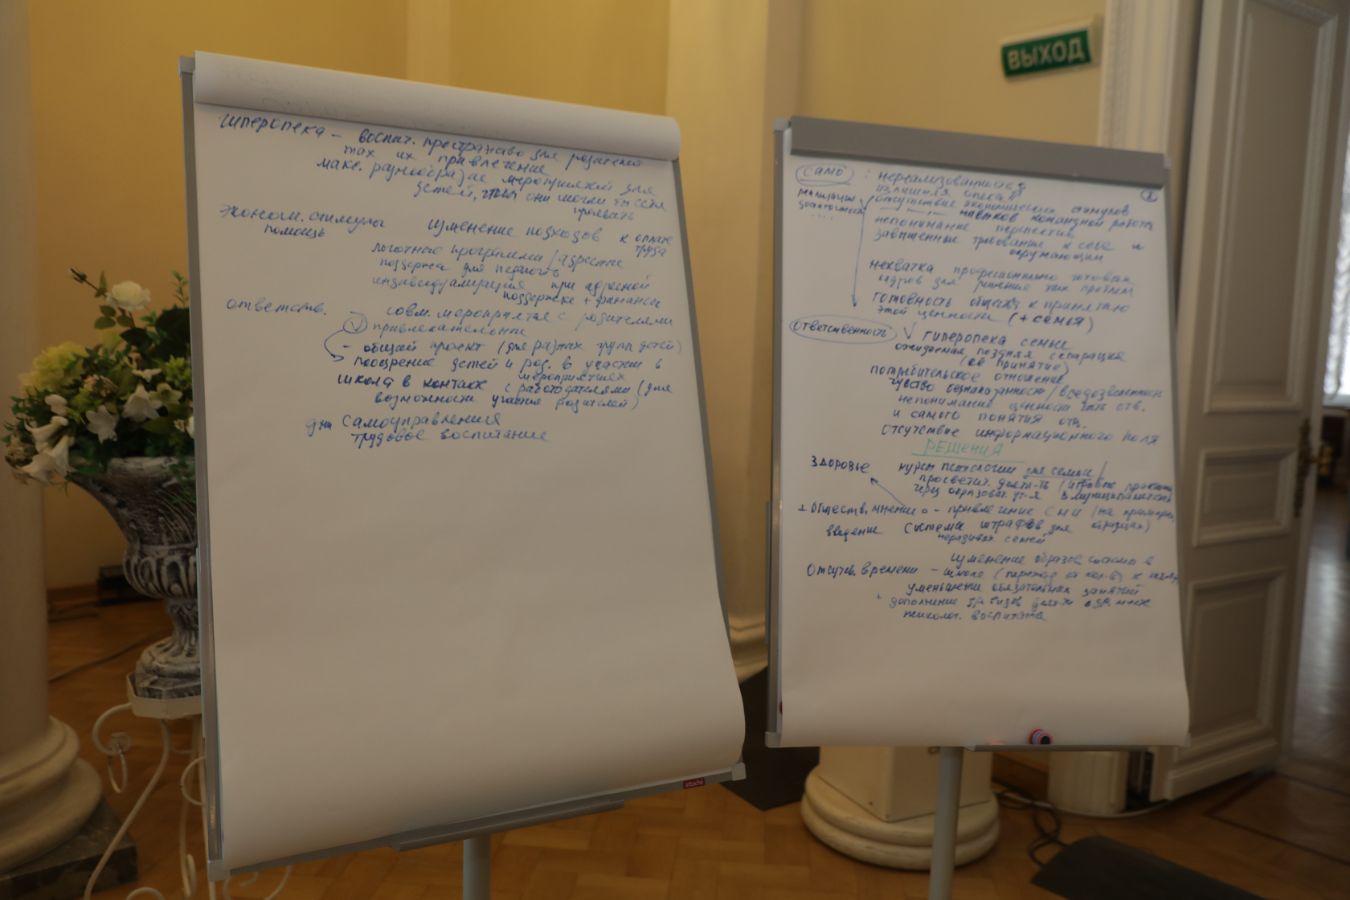 ВЫХОД
гиперопека – воспит. пространство для родителей
их привлечение
макс. разнообразие мероприятий для
детей, чтобы они могли
проявить
эконом. стимула изменение подходов к оплате
помощь труда
поддержка для
индивидуализация при адресной
поддержке + финансы
ответств. совм. мероприятия с родителями
привлекательные
– общий проект (для разных групп детей)
поощрение детей и род. в участии в
мероприятиях
школа в контакте с работодателями (для
возможности участия родителей)
дни самоуправления
трудовое воспитание
само : нереализованность
реализация излишняя опека
отсутствие экономических стимулов
.... навыков командной работы
непонимание перспектив
завышенные требования к себе и
окружающим
нехватка профессионально
кадров для решения этих проблем
готовность общества к принятию
этой ценности (+ семья)
ответственность гиперопека семьи
ожидаемая поздняя сепарация
(её принятие)
потребительское отношение
чувство безнаказанности / вседозволенности
непонимание ценности отв.
и самого понятия отв.
отсутствие информационного поля
РЕШЕНИЯ
здоровье курсы психологии для семьи /
просветит.
через образоват.
+ обществ. мнение – привлечение СМИ (на примерах,
введение система штрафов для образцах)
нерадивых семей
изменение образов. системы в
отсутв. времени – школе (переход от кол-ва к
уменьшение обязательных занятий
+ дополнение
психолог. воспитания